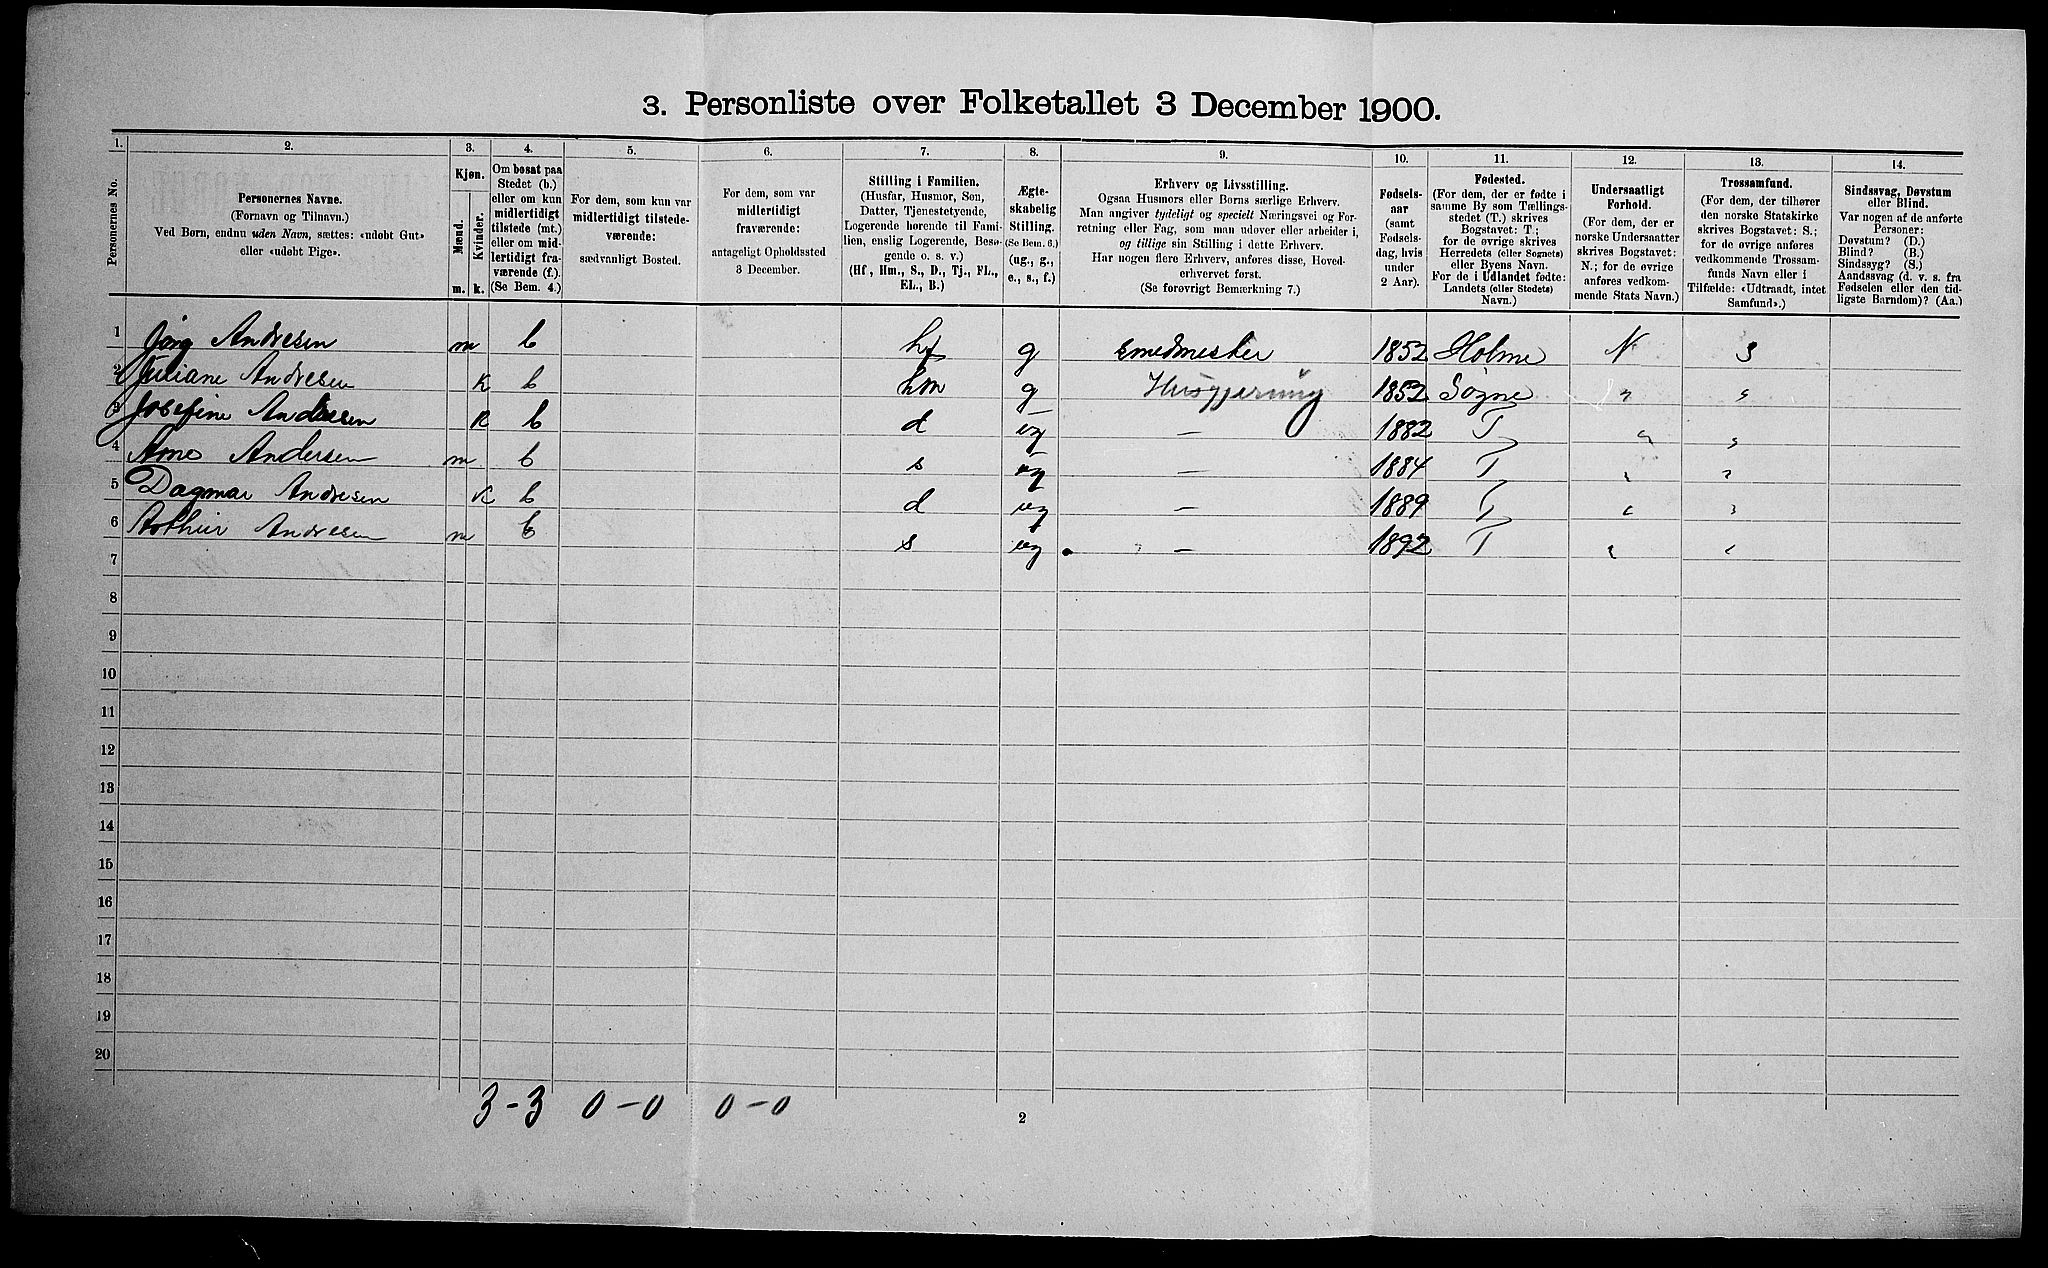 3. Personliste over Folketallet 3 December 1900.
1. 2. 3. 4. 5. 6. 7. 8. 9. 10. 11. 12. 13. 14.
Personernes No.
Personernes Navne.
(Fornavn og Tilnavn.)
Ved Børn, endnu uden Navn, sættes: «udøbt Gut»
eller «udøbt Pige».
Kjøn.
Mænd.
Kvinder.
m. k.
Om bosat paa
Stedet (b.)
eller om kun
midlertidigt
tilstede (mt.)
eller om mid-
lertidigt fra-
værende (f.)
(Se Bem. 4.)
For dem, som kun var
midlertidigt tilstede-
værende:
sædvanligt Bosted.
For dem, som var
midlertidigt
fraværende:
antageligt Opholdssted
3 December.
Stilling i Familien.
(Husfar, Husmor, Søn,
Datter, Tjenestetyende,
Logerende hørende til Fami-
lien, enslig Logerende, Besø-
gende o. s. v.)
(Hf, Hm., S., D., Tj., FL.,
EL., B.)
Ægte-
skabelig
Stilling.
(Se Bem. 6.)
(ug., g.,
e., s., f.)
Erhverv og Livsstilling.
Ogsaa Husmors eller Børns særlige Erhverv.
Man angiver tydeligt og specielt Næringsvei og For-
retning eller Fag, som man udøver eller arbeider i,
og tillige sin Stilling i dette Erhverv.
Har nogen flere Erhverv, anføres disse, Hoved-
erhvervet først.
(Se forøvrigt Bemærkning 7.)
Fødsels-
aar
(samt
Fødsels-
dag, hvis
under
2 Aar).
Fødested.
(For dem, der er fødte i
samme By som Tællings-
stedet (T.) skrives
Bogstavet: T.;
for de øvrige skrives
Herredets (eller Sognets)
eller Byens Navn.
For de i Udlandet fødte:
Landets (eller Stedets)
Navn.)
Undersaatligt
Forhold.
(For dem, der er
norske Undersaatter
skrives Bogstavet:
N.; for de øvrige
anføres vedkom-
mende Stats Navn.)
Trossamfund.
(For dem, der tilhører
den norske Statskirke
skrives Bogstavet: S.;
for de øvrige anføres
vedkommende Trossam-
funds Navn eller i
Tilfælde: «Udtraadt, intet
Samfund».)
Sindssvag, Døvstum
eller Blind.
Var nogen af de anførte
Personer:
Døvstum? (D.)
Blind? (B.)
Sindssyg? (S.)
Aandssvag (d. v. s. fra
Fødselen eller den tid-
ligste Barndom)? (Aa.)
1 Jörg Andresen m b hf g smedmester 1852 Holme N S
2 Juliane Andresen K b hm g Husgjerning 1852 Søgne " "
3 Josefine Andresen K b d ug — 1882 T " "
4 Arne Andersen m b s ug — 1884 T " "
5 Dagmar Andresen K b d ug — 1889 T " "
6 Arthur Andresen m b s ug — 1892 T " "
7
8
9
10
11
12
13
14
15
16
17
18
19
20
3-3 0-0 0-0
2